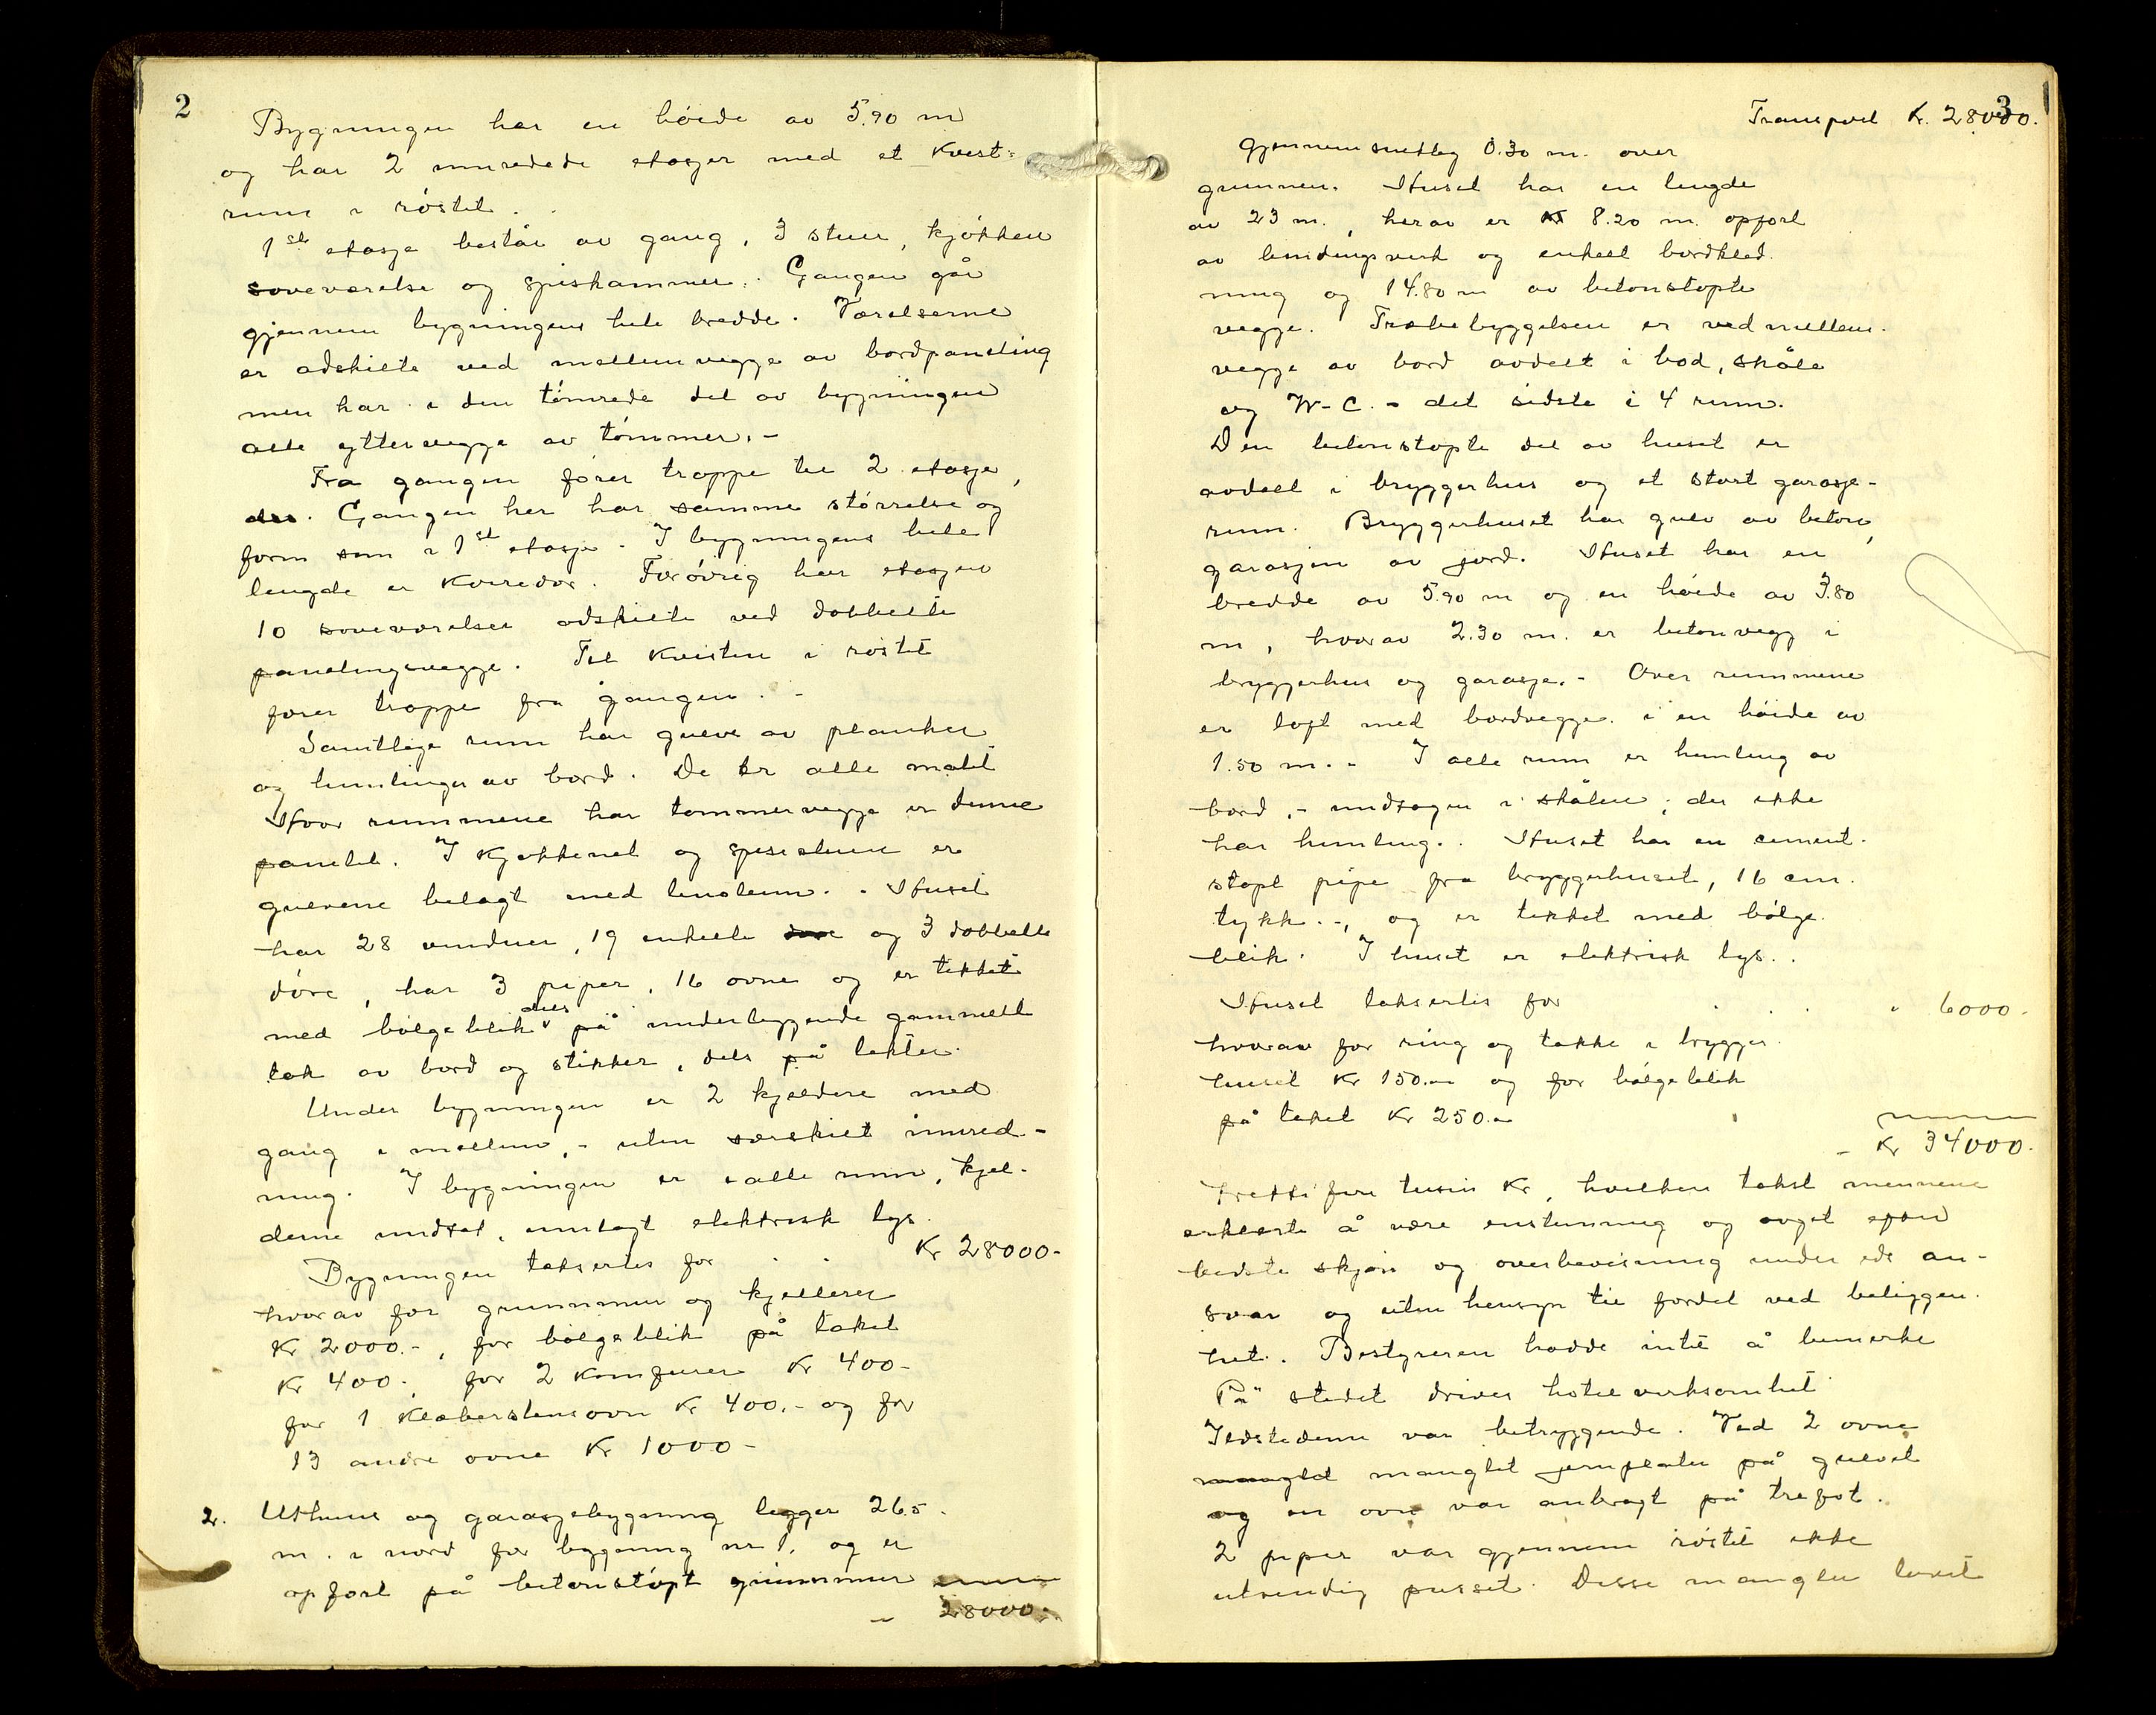 2
Bygningen har en höide av 5.90 m
og har 2 innredede etasjer med et Kvist-
rum i röstet.
1ste etasje består av gang, 3 stuer, kjökken
soveværelse og spiskammer. Gangen går
gjennem bygningens hele bredde. Værelserne
er adskilte ved mellemvegge av bordpaneling
men har i den tömrede del av bygningen
alle yttervegge av tömmer. -
Fra gangen fører trappe til 2 etasje,
Gangen her har samme störrelse og
form som i 1st etasje. I bygningens hele
lengde er Korridor. Forövrig har etasjen
10 soveværelser adskilte ved dobbelte
panelingsvegge. Til Kvisten i röstet
fører trappe fra gangen. -
Samtlige rum har gulve av planker
og himlinger av bord. De er alle malt
Hvor rummene har tømmervegge er denne
panelt. I Kjøkkenet og spisestuen er
gulvene belagt med linoleum. - Huset
har 28 vinduer, 19 enkelte döre og 3 dobbelte
döre, har 3 piper, 16 ovne og er tekket
med bølgeblik dels på underliggende gammelt
tak av bord og stikker, dels på lekter.
Under bygningen er 2 kjeldere med
gang i mellem, - uten særskilt innred-
ning. I bygningen er i alle rum, kjel-
derne undtat, innlagt elektrisk lys.
Bygningen takseres for . . Kr 28000-
hvorav for grunnmur og kjellerer
Kr 2000.-, for bølgeblik på taket
Kr 400-, for 2 Komfurer Kr 400-
for 1 Klæberstensovn Kr 400.- og for
13 andre ovne Kr 1000-
2. Uthus og garasjebygning ligger 26.5
m. i nord for bygning nr 1. og er
opført på betonstöpt grunnmur
- 28000.-
3
Transport Kr. 28000.
gjennemsnitlig 0.30 m. over
grunnen. Huset har en lengde
av 23 m., herav er 8.20 m. opført
av bindingsverk og enkelt bordkled-
ning og 14.80 m av betonstøpte
vegge. Træbebyggelsen er ved mellem-
vegge av bord avdelt i bod, skåle
og W-C. - det sidste i 4 rum.
Den betonstøpte del av huset er
avdelt i bryggerhus og et stort garasje-
rum. Bryggerhuset har gulv av beton,
garasjen av jord. Huset har en
bredde av 5.90 m og en høide av 3.80
m, hvorav 2.30 m. er betonvegg i
bryggerhus og garasje. - Over rummene
er loft med bordvegge i en høide av
1.50 m. - I alle rum er himling av
bord, - undtagen i skålen, der ikke
har himling. Huset har en cement-
støpt pipe fra bryggerhuset, 16 cm.
tykk -, og er tekket med bölge-
blik. I huset er elektrisk lys.
Huset takseres for . . . " 6000.
hvorav for ring og takke i brygger-
huset Kr 150.- og for bølgeblik
på taket Kr 250.-
- Kr 34000.
Tretti fire tusin Kr, hvilken takst mennene
erklærte å være enstemmig og avgit efter
bedste skjøn og overbevisning under eds an-
svar og uten hensyn til fordel ved beliggen-
het. Bestyreren hadde intet å bemerke
På stedet drives hotelvirksomhet
Ildstedene var betryggende. Ved 2 ovne
manglet manglet jernplater på gulvet
og en ovn var anbragt på trefot.
2 piper var gjennem röstet ikke
utvendig pusset. Disse mangler lovet